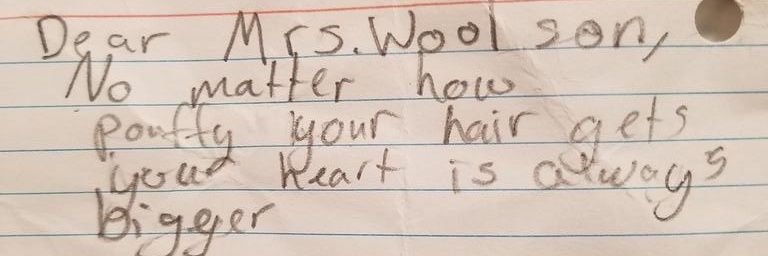 Dear Mrs. Woolson,
No matter how
pouffy your hair gets
your heart is always
bigger